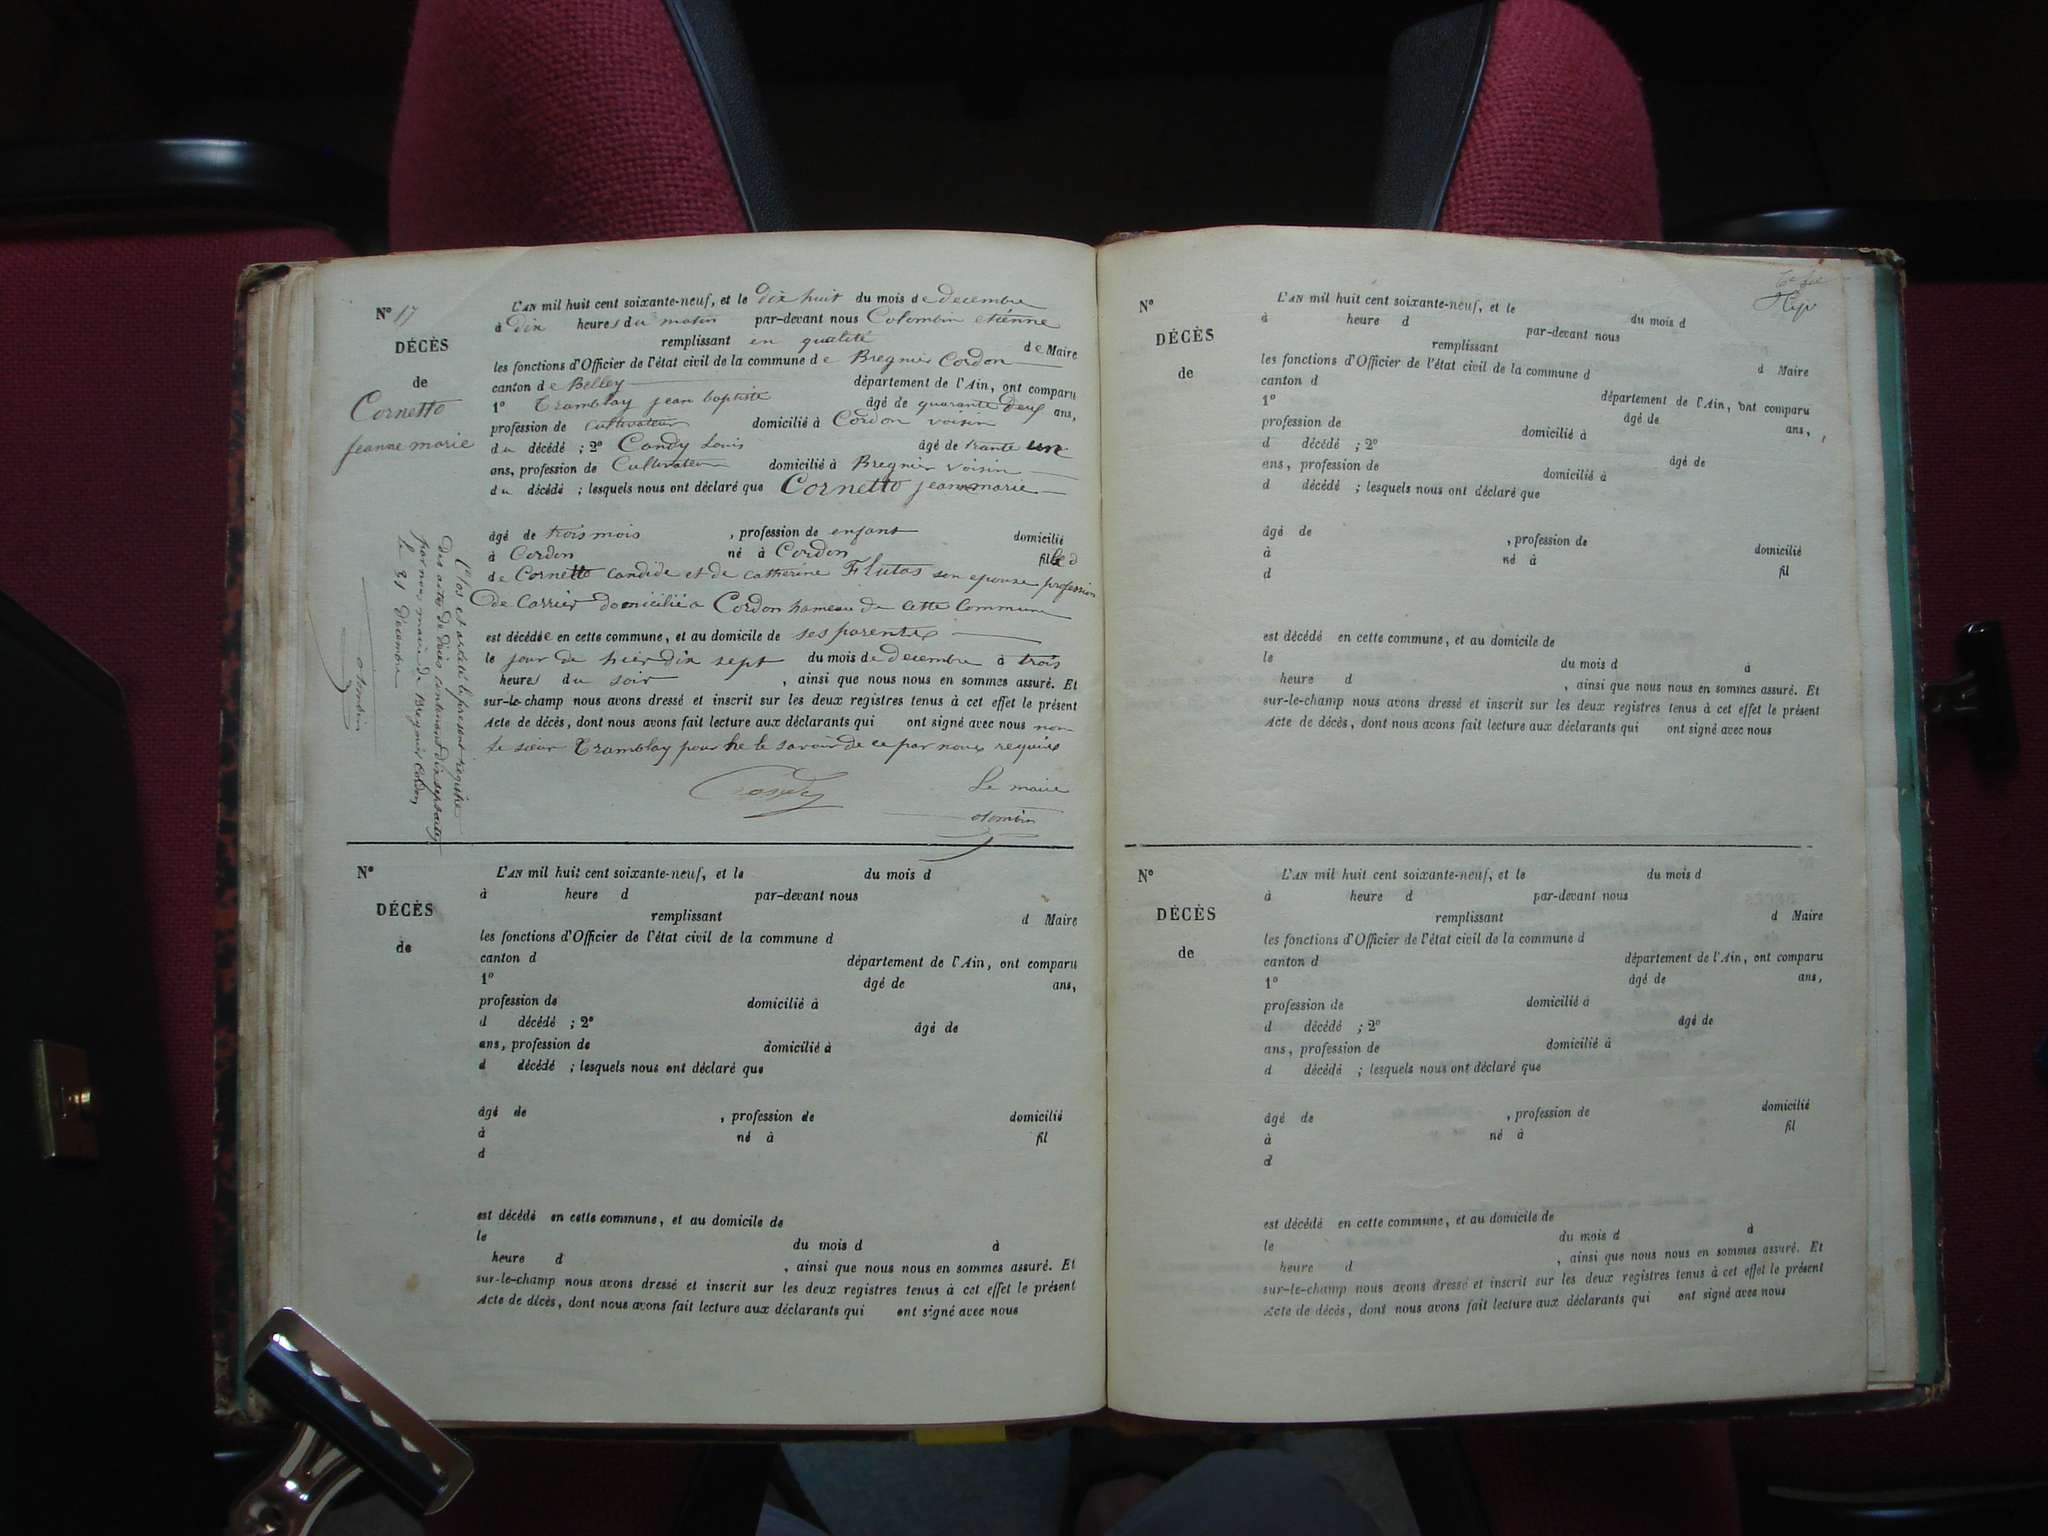 N° 17
DÉCÈS
de
Cornetto
jeanne marie
L'AN mil huit cent soixante-neuf, et le dix huit du mois de decembre
à dix heures du matin par-devant nous Colombin etiénne
remplissant en qualité de Maire
les fonctions d'Officier de l'état civil de la commune de Bregnier Cordon
canton de Belley département de l'Ain, ont comparu
1° Tramblay jean baptiste âgé de quarante deux ans,
profession de cultivateur domicilié à Cordon voisin
du décédé ; 2° Candy Louis âgé de trante une
ans, profession de Cultivateur domicilié à Bregnier voisin
du décédé ; lesquels nous ont déclaré que Cornetto jeanne marie
âgé de trois mois , profession de enfant domicilié
à Cordon né à Cordon fille d
de Cornetto candide et de catherine Flutas son epouse profession
de Carrier domicilié a Cordon hameau de cette Commune
est décédée en cette commune, et au domicile de ses parents
le jour de hier dix sept du mois de decembre à trois
heures du soir , ainsi que nous nous en sommes assuré. Et
sur-le-champ nous avons dressé et inscrit sur les deux registres tenus à cet effet le présent
Acte de décès, dont nous avons fait lecture aux déclarants qui ont signé avec nous non
le sieur Tramblay pour ne le savoir de ce par nous requis
Candy
Le maire
Colombin
Clos et arrêté le present registre
des actes de décès contenant dix sept actes
par nous maire de Bregnier Cordon
le 31 decembre
Colombin
N°
DÉCÈS
de
L'AN mil huit cent soixante-neuf, et le du mois d
à heure d par-devant nous
remplissant d Maire
les fonctions d'Officier de l'état civil de la commune d
canton d département de l'Ain, ont comparu
1° âgé de ans,
profession de domicilié à
d décédé ; 2° âgé de
ans, profession de domicilié à
d décédé ; lesquels nous ont déclaré que
âgé de , profession de domicilié
à né à fil
d
est décédé en cette commune, et au domicile de
le du mois d à
heure d , ainsi que nous nous en sommes assuré. Et
sur-le-champ nous avons dressé et inscrit sur les deux registres tenus à cet effet le présent
Acte de décès, dont nous avons fait lecture aux déclarants qui ont signé avec nous
N°
DÉCÈS
de
L'AN mil huit cent soixante-neuf, et le du mois d
à heure d par-devant nous
remplissant d Maire
les fonctions d'Officier de l'état civil de la commune d
canton d département de l'Ain, ont comparu
1° âgé de ans,
profession de domicilié à
d décédé ; 2° âgé de
ans, profession de domicilié à
d décédé ; lesquels nous ont déclaré que
âgé de , profession de domicilié
à né à fil
d
est décédé en cette commune, et au domicile de
le du mois d à
heure d , ainsi que nous nous en sommes assuré. Et
sur-le-champ nous avons dressé et inscrit sur les deux registres tenus à cet effet le présent
Acte de décès, dont nous avons fait lecture aux déclarants qui ont signé avec nous
N°
DÉCÈS
de
L'AN mil huit cent soixante-neuf, et le du mois d
à heure d par-devant nous
remplissant d Maire
les fonctions d'Officier de l'état civil de la commune d
canton d département de l'Ain, ont comparu
1° âgé de ans,
profession de domicilié à
d décédé ; 2° âgé de
ans, profession de domicilié à
d décédé ; lesquels nous ont déclaré que
âgé de , profession de domicilié
à né à fil
d
est décédé en cette commune, et au domicile de
le du mois d à
heure d , ainsi que nous nous en sommes assuré. Et
sur-le-champ nous avons dressé et inscrit sur les deux registres tenus à cet effet le présent
Acte de décès, dont nous avons fait lecture aux déclarants qui ont signé avec nous